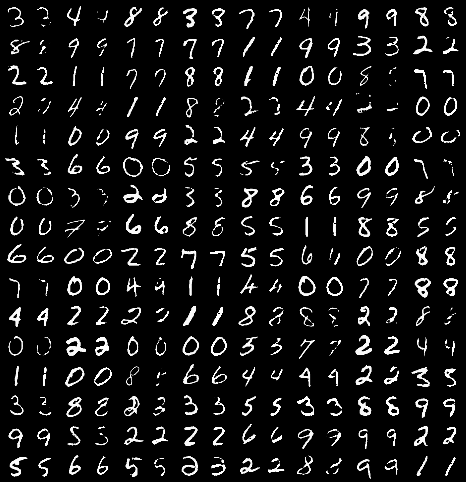 3 3 4 4 8 8 3 8 7 7 4 4 9 9 8 8
8 8 9 9 7 7 7 7 1 1 9 9 3 3 2 2
2 2 1 1 7 7 8 8 1 1 0 0 8 7 7
2 2 4 4 1 1 8 8 2 3 4 4 2 0 0
1 1 0 0 9 9 2 2 4 4 9 9 8 0 0
3 3 6 6 0 0 5 5 5 5 3 3 0 0 7 7
0 0 3 3 2 2 3 3 8 8 6 6 9 9 8 8
0 0 7 6 6 8 8 5 5 1 1 8 8 5 5
6 6 0 0 2 2 7 7 5 5 6 4 0 0 8 8
7 7 0 0 4 4 1 1 4 4 0 0 7 7 8 8
4 4 2 2 2 2 1 1 8 8 8 8 2 2 8 8
0 0 2 2 0 0 0 0 5 5 7 7 2 2 4 4
1 1 0 0 8 6 6 4 4 9 9 2 2 3 5
3 3 8 8 2 3 3 3 5 5 3 3 8 8 9 9
9 9 5 5 2 2 2 2 6 6 9 9 9 9 2 2
5 5 6 6 5 5 2 3 2 2 8 8 9 9 1 1